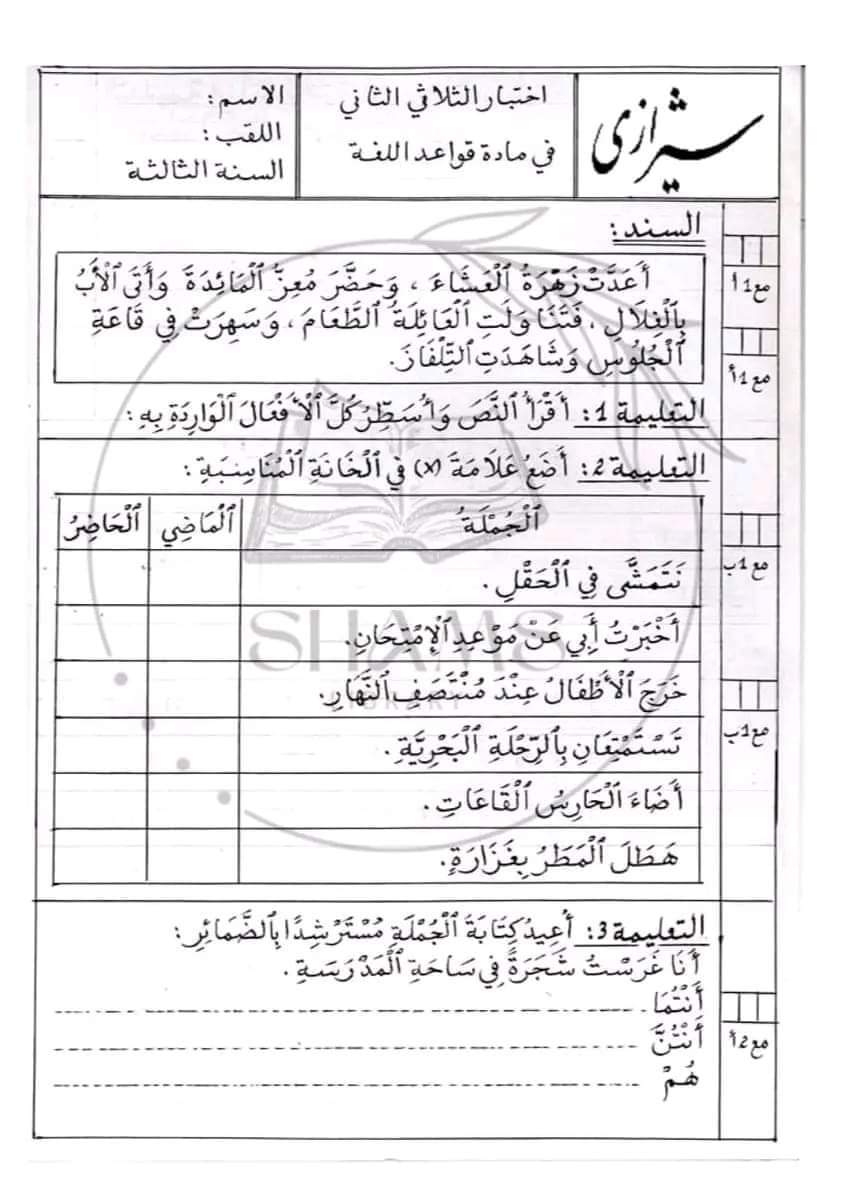 شيرازي
اختبار الثلاثي الثاني
في مادة قواعد اللغة
الاسم:
اللقب:
السنة الثالثة
السند:
أَعَدَّتْ زَهْرَةُ ٱلْعَشَاءَ ، وَحَضَّرَ مُعِزُّ ٱلْمَائِدَةَ وَأَتَى ٱلْأَبُ
بِٱلْغِلَالِ ، فَتَنَاوَلَتِ ٱلْعَائِلَةُ ٱلطَّعَامَ ، وَسَهِرَتْ فِي قَاعَةِ
ٱلْجُلُوسِ وَشَاهَدَتِ ٱلتِّلْفَازَ.
مع1أ
مع1أ
التعليمة 1: أَقْرَأُ ٱلنَّصَ وَأُسَطِّرُ كُلَّ ٱلْأَفْعَالِ ٱلْوَارِدَةِ بِهِ:
التعليمة 2: أَضَعُ عَلَامَةَ (x) في ٱلْخَانَةِ ٱلْمُنَاسِبَةِ :
ٱلْجُمْلَةُ ٱلْمَاضِي ٱلْحَاضِرُ
نَتَمَشَّى فِي ٱلْحَقْلِ .
أَخْبَرْتُ أَبِي عَنْ مَوْعِدِ ٱلْإِمْتِحَانِ.
خَرَجَ ٱلْأَطْفَالُ عِنْدَ مُنْتَصَفِ ٱلنَّهَارِ.
تَسْتَمْتِعَانِ بِٱلرِّحْلَةِ ٱلْبَحْرِيَّةِ .
أَضَاءَ ٱلْحَارِسُ ٱلْقَاعَاتِ .
هَطَلَ ٱلْمَطَرُ بِغَزَارَةٍ.
مع1ب
مع1ب
التعليمة 3: أُعِيدُ كِتَابَةَ ٱلْجُمْلَةِ مُسْتَرْشِدًا بِٱلضَّمَائِرِ :
أَنَا غَرَسْتُ شَجَرَةً فِي سَاحَةِ ٱلْمَدْرَسَةِ .
أَنْتُمَا
أَنْتُنَّ
هُمْ
مع2أ
SHAMS
LIBRARY